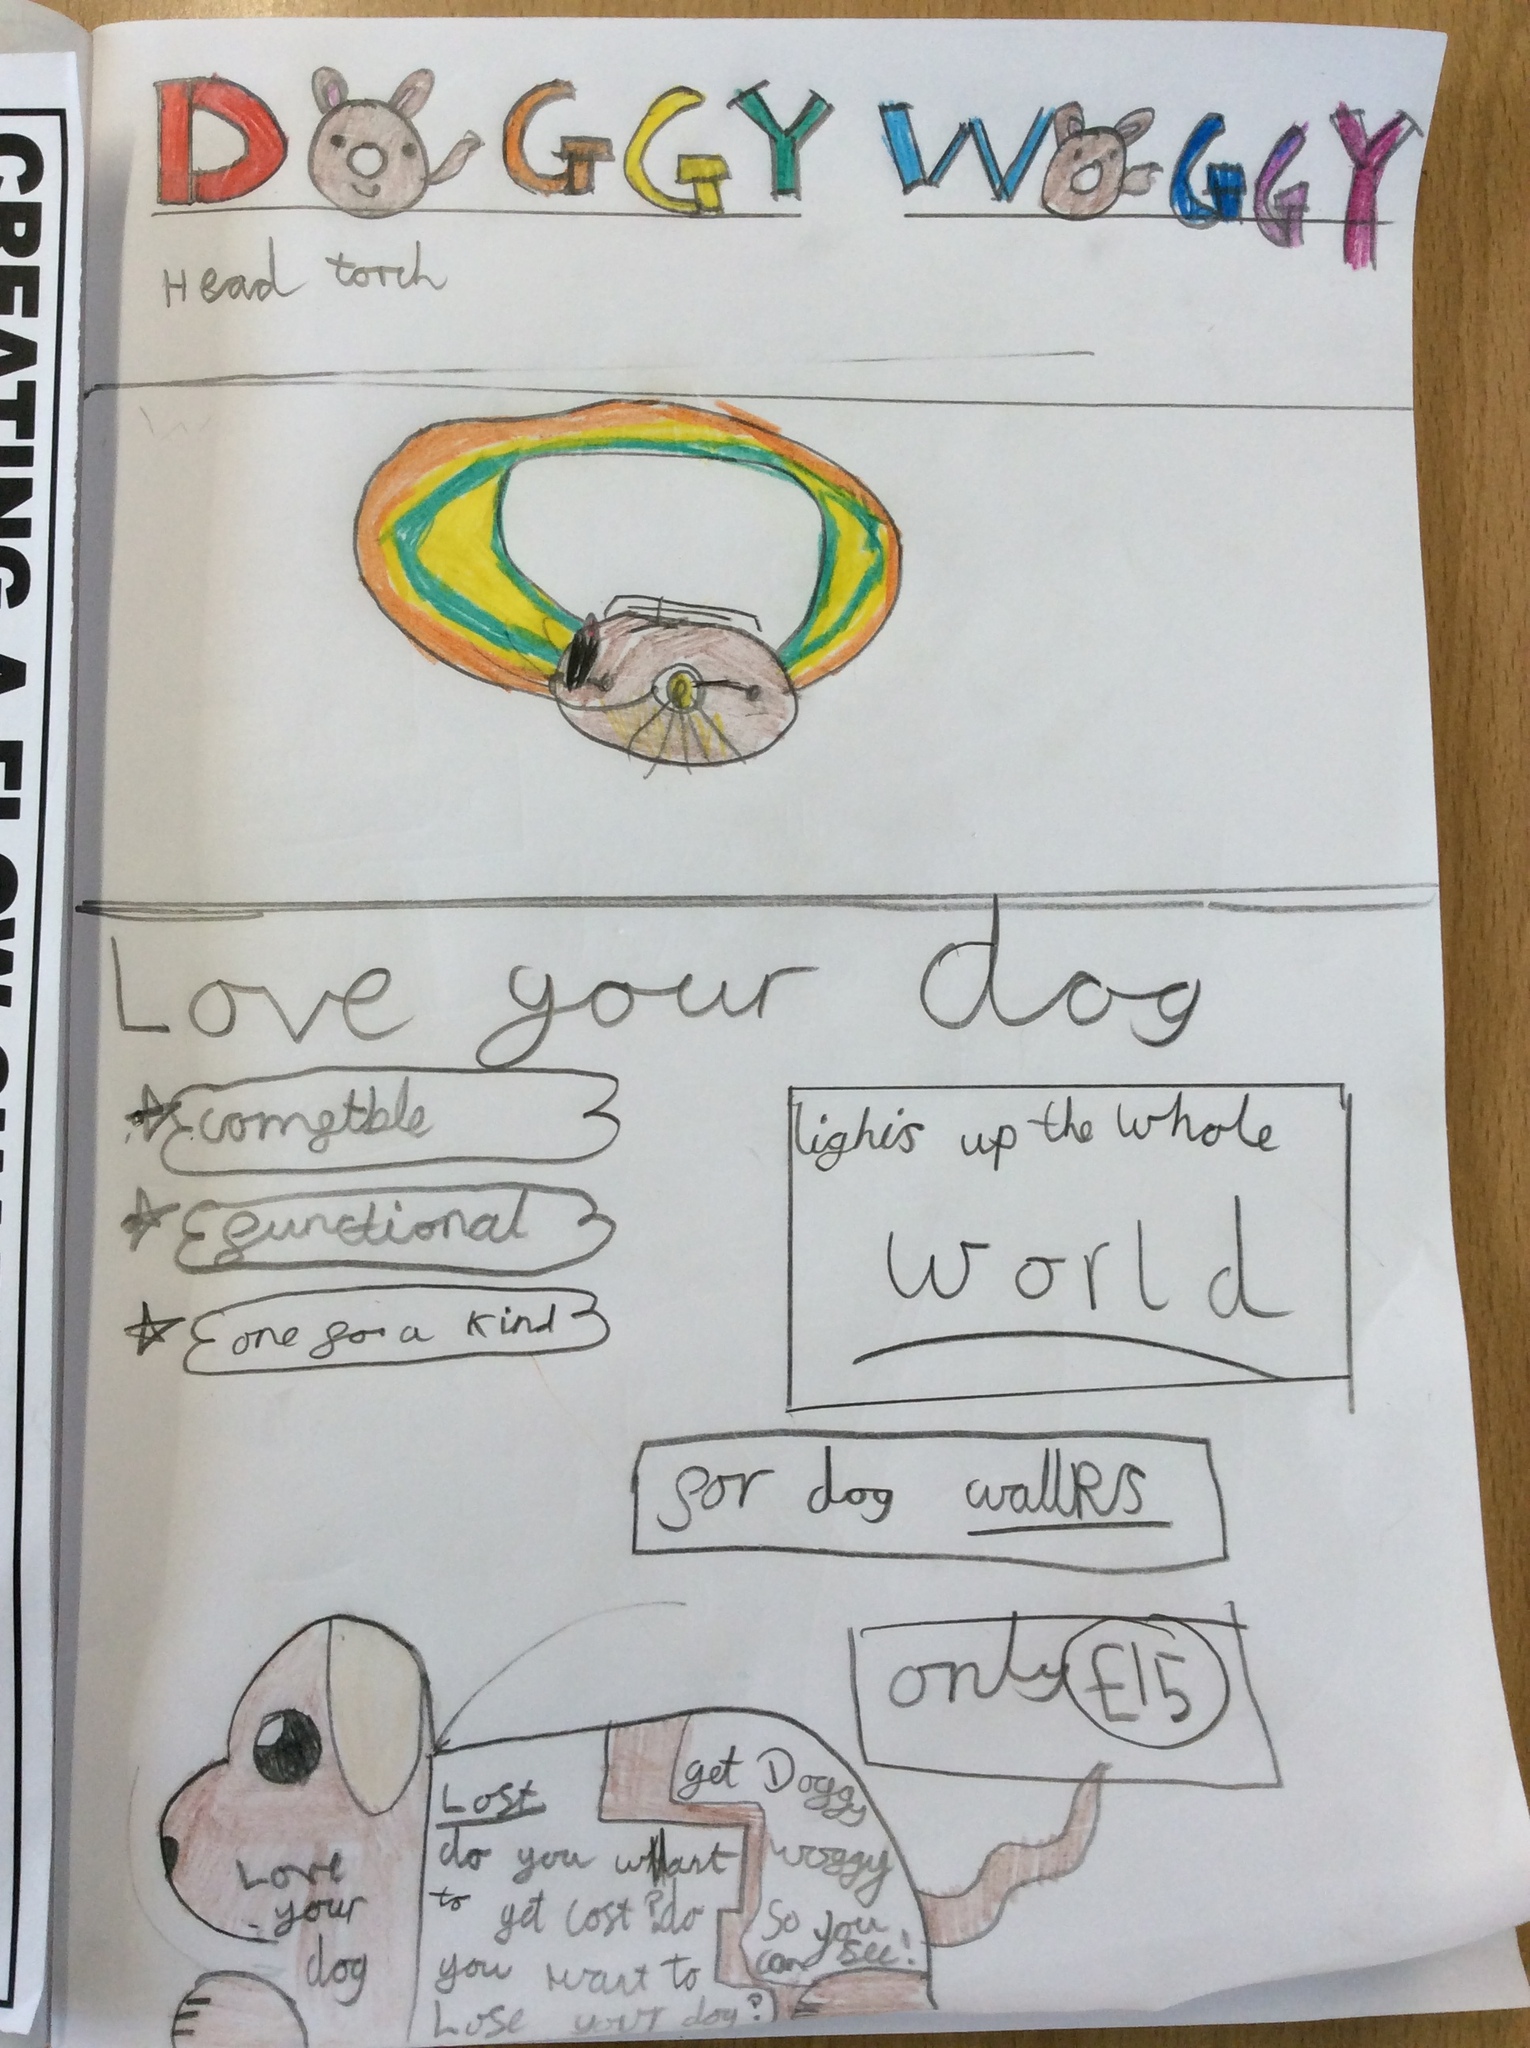 DOGGY WOGGY
Head torch
Love your dog
comgtble
functional
one fo a kind
lights up the whole
world
for dog wallRS
only £15
Love
your
dog
Lost
do you want
to get lost? do
you want to
Lose your dog?
get Doggy
woggy
So you
can see!